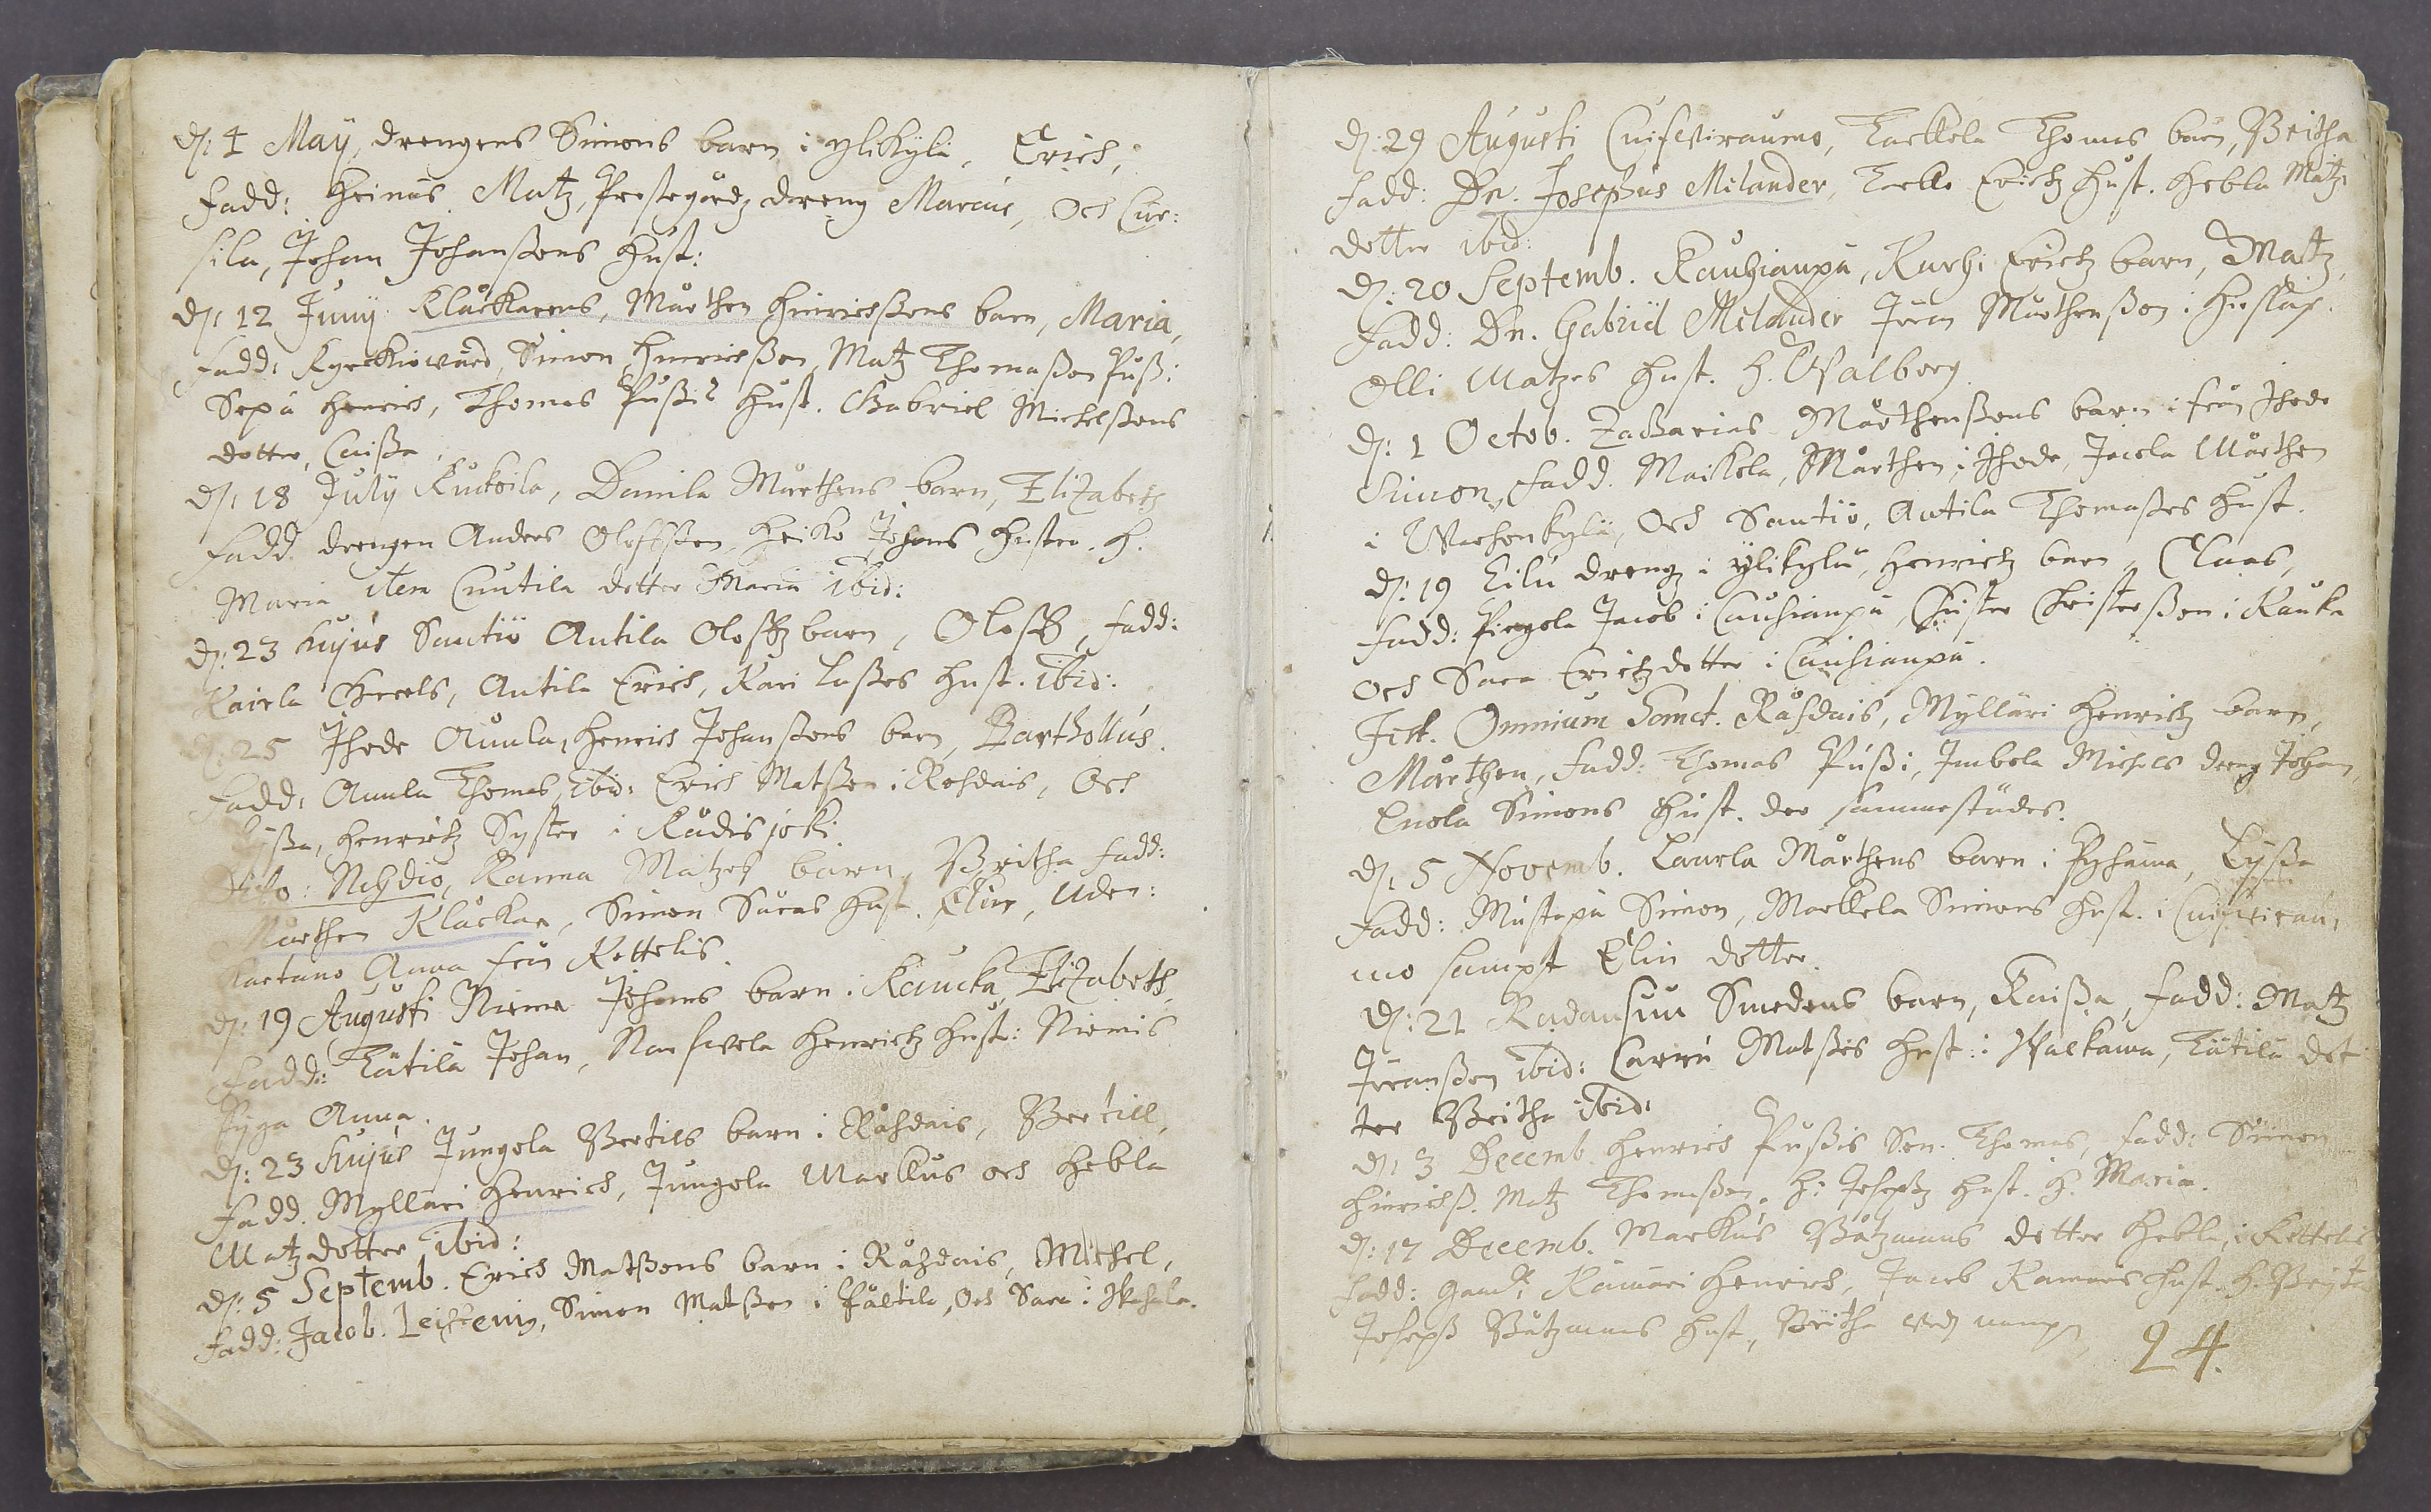 d: 4 Maÿ, drengens Simons barn i ylikylä, Erich,
Fadd: Heinus Matz, Prestegårdz dreng Marcus, och Cur:
sila, Johan Johanßons hust:
d: 12 Junÿ Klåckarens, Mårthen Hinrichßons barn, Maria,
Fadd: Kyrckiowärd, Simon Hinrichßon, Matz Thomaßon Pußi
Sepä Henrich, Thomas Pußis hust. Gabriel Michelßons
dotter, Caißa.
d: 18 Julÿ Kuckoila, Danila Mårthens barn, Elizabeth
Fadd. drengen Anders Oloffßon, Heiko Johans hustro. h.
Maria item Cuutila dotter Maria ibid:
d: 23 hujus Santiö Antila Oloffz barn, Oloff, Fadd:
Kairla Chreels, Antila Erich, Kari Laßes hust. ibid:
d: 25 Ihode Anula, Henrich Johanßons barn, Barthollus.
Fadd: Anula Thomas, ibid: Erich Matßon i Rohdais, Och
Lißa, Henrichz Syster i Rådisjoki
dito: Nehdio, Kanna Matzes barn, Britha Fadd:
Mårthen Klåckar, Simon Suras hust. Elin, Uden:
kaetano Anna från Kettelis.
d: 19 Augusti Niema Johans barn i Kaucka, Elizabeth,
Fadd: Tätilä Johan, Narfwela Henrichz hust: Niemis
Pyga Anna.
d: 23 hujus Jungola Bertils barn i Råhdais, Bertill,
Fadd. Myllari Henrich, Jungola Markus och Hebla
Matzdotter ibid:
d: 5 Septemb. Erich Matßons barn i Råhdais, Michel,
Fadd: Jacob. Leistenig, Simon Matßon i Påltila, och Sara i

d: 29 Augusti Cuiwiraumo, Tarkkela Thomas barn, Britha
Fadd: Dn. Josephus Milander, Tarkk: Erichz hust. Hebla Matz
dotter ibid:
d: 20 Septemb. Kauhianpä, Kurhi Erichz barn, Matz,
Fadd: Dn. Gabriel Milander Jöran Mårthenßon i Hirslax.
Olli Matzes hust. h. Walborg.
d: 1 Octob. Zacharias Mårthenßons barn i från Ihode
Simon, Fadd. Markela, Mårthen i Ihode, Jacola Mårthen
i Warhenkylä, Och Santiö, Antila Thomaßes hust.
d: 19 Eilu drengz i ÿlikylä, Henrichz barn, Claas,
Fadd: Piegola Jacob i Cauhianpä, Christer Christerßon i Kauka
och Sara Erichzdotter i Cauhianpä.
Fest. Omnium Sanct. Råhdais, Mÿlläri Henrichz barn,
Mårthen, Fadd: Thomas Pußi, Inbola Michels dreng Johan,
Enola Simons hust. der sammestädes.
d: 5 Novemb. Laurla Mårthens barn i Pyhäma, Lyßa
Fadd: Mustapä Simon, Markkela Simons hust. i Cuiwirau,
mo sampt Elin dotter.
d: 21 Radansuu Smedens barn, Kaißa, Fadd: Matz
Jöranßon ibid: Carru Matßes hust: i Walkama, Tätilä dot
ter Britha ibid:
d: 3 Decemb Henrich Pußis Son. Thomas, Fadd: Simon
Hinrichß. Matz Thomaßon. H: Josephz hust. h. Maria.
d: 17 Decemb. Markus Båtzmans dotter Hebla, i Kettelis
Fadd: Kamari Henrich, Jacob Kamaris hust. h. Brita
Joseph Båtzmans hust, Britha
24.